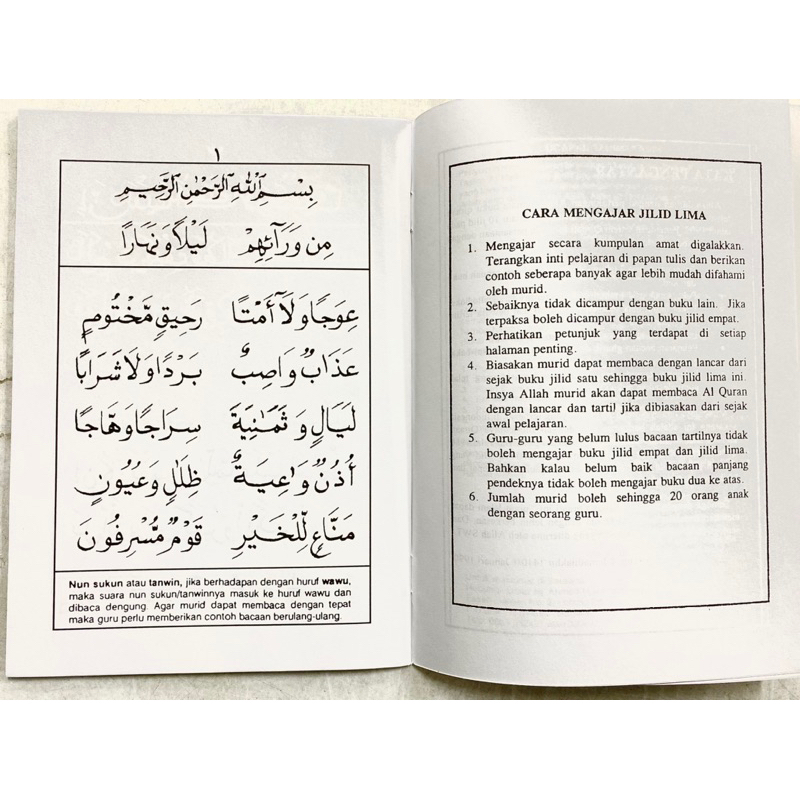 CARA MENGAJAR JILID LIMA
1. Mengajar secara kumpulan amat digalakkan.
Terangkan inti pelajaran di papan tulis dan berikan
contoh seberapa banyak agar lebih mudah difahami
oleh murid.
2. Sebaiknya tidak dicampur dengan buku lain. Jika
terpaksa boleh dicampur dengan buku jilid empat.
3. Perhatikan petunjuk yang terdapat di setiap
halaman penting.
4. Biasakan murid dapat membaca dengan lancar dari
sejak buku jilid satu sehingga buku jilid lima ini.
Insya Allah murid akan dapat membaca Al Quran
dengan lancar dan tartil jika dibiasakan dari sejak
awal pelajaran.
5. Guru-guru yang belum lulus bacaan tartilnya tidak
boleh mengajar buku jilid empat dan jilid lima.
Bahkan kalau belum baik bacaan panjang
pendeknya tidak boleh mengajar buku dua ke atas.
6. Jumlah murid boleh sehingga 20 orang anak
dengan seorang guru.
١
بِسْمِ ٱللَّهِ ٱلرَّحْمَٰنِ ٱلرَّحِيمِ
مِن وَرَآئِهِمْ لَيْلًا وَنَهَارًا
عِوَجًا وَلَآ أَمْتًا رَحِيقٍ مَّخْتُومٍ
عَذَابٌ وَاصِبٌ بَرْدًا وَلَا شَرَابًا
لَيَالٍ وَثَمَٰنِيَةَ سِرَاجًا وَهَّاجًا
أُذُنٌ وَٰعِيَةٌ ظِلَٰلٍ وَعُيُونٍ
مَنَّاعٍ لِّلْخَيْرِ قَوْمٌ مُّسْرِفُونَ
Nun sukun atau tanwin, jika berhadapan dengan huruf wawu,
maka suara nun sukun/tanwinnya masuk ke huruf wawu dan
dibaca dengung. Agar murid dapat membaca dengan tepat
maka guru perlu memberikan contoh bacaan berulang-ulang.